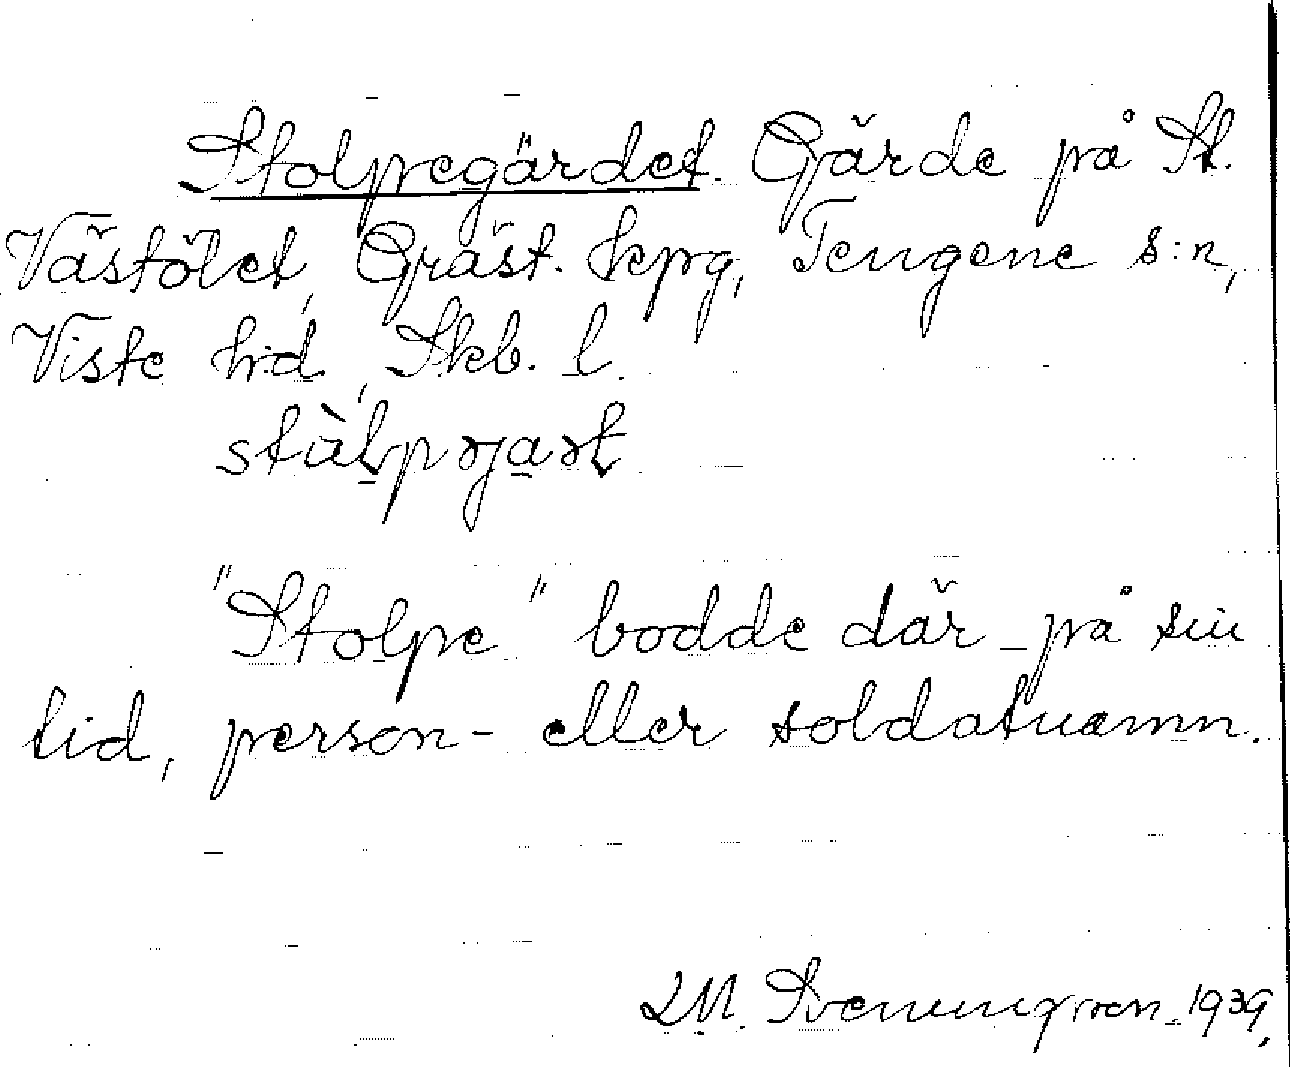 Stolpegärdet. Gärde på St.
Västölet, Gräst. kpg, Tengene s:n,
Viste hd, Skb. l.
"Stolpe" bodde där på sin
tid, person- eller soldatnamn.
1939.